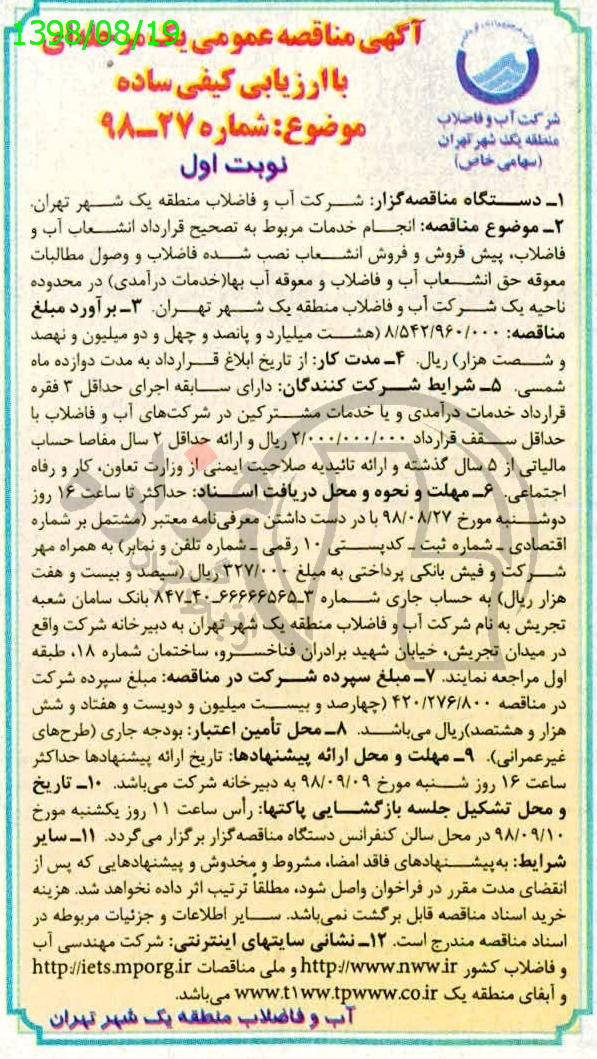 1398/08/19
آگهی مناقصه عمومی یک مرحله‌ای
با ارزیابی کیفی ساده
موضوع: شماره ۲۷-۹۸
نوبت اول
شرکت آب و فاضلاب
منطقه یک شهر تهران
(سهامی خاص)
۱ـ دستگاه مناقصه‌گزار: شرکت آب و فاضلاب منطقه یک شهر تهران.
۲ـ موضوع مناقصه: انجام خدمات مربوط به تصحیح قرارداد انشعاب آب و
فاضلاب، پیش فروش و فروش انشعاب نصب شده فاضلاب و وصول مطالبات
معوقه حق انشعاب آب و فاضلاب و معوقه آب بها(خدمات درآمدی) در محدوده
ناحیه یک شرکت آب و فاضلاب منطقه یک شهر تهران. ۳ـ برآورد مبلغ
مناقصه: ۸/۵۴۲/۹۶۰/۰۰۰ (هشت میلیارد و پانصد و چهل و دو میلیون و نهصد
و شصت هزار) ریال. ۴ـ مدت کار: از تاریخ ابلاغ قرارداد به مدت دوازده ماه
شمسی. ۵ـ شرایط شرکت کنندگان: دارای سابقه اجرای حداقل ۳ فقره
قرارداد خدمات درآمدی و یا خدمات مشترکین در شرکت‌های آب و فاضلاب با
حداقل سقف قرارداد ۲/۰۰۰/۰۰۰/۰۰۰ ریال و ارائه حداقل ۲ سال مفاصا حساب
مالیاتی از ۵ سال گذشته و ارائه تائیدیه صلاحیت ایمنی از وزارت تعاون، کار و رفاه
اجتماعی. ۶ـ مهلت و نحوه و محل دریافت اسناد: حداکثر تا ساعت ۱۶ روز
دوشنبه مورخ ۹۸/۰۸/۲۷ با در دست داشتن معرفی‌نامه معتبر (مشتمل بر شماره
اقتصادی ـ شماره ثبت ـ کدپستی ۱۰ رقمی ـ شماره تلفن و نمابر) به همراه مهر
شرکت و فیش بانکی پرداختی به مبلغ ۳۲۷/۰۰۰ ریال (سیصد و بیست و هفت
هزار ریال) به حساب جاری شماره ۳ـ۶۶۶۶۶۵۶۵ـ۴۰ـ۸۴۷ بانک سامان شعبه
تجریش به نام شرکت آب و فاضلاب منطقه یک شهر تهران به دبیرخانه شرکت واقع
در میدان تجریش، خیابان شهید برادران فناخسرو، ساختمان شماره ۱۸، طبقه
اول مراجعه نمایند. ۷ـ مبلغ سپرده شرکت در مناقصه: مبلغ سپرده شرکت
در مناقصه ۴۲۰/۲۷۶/۸۰۰ (چهارصد و بیست میلیون و دویست و هفتاد و شش
هزار و هشتصد)ریال می‌باشد. ۸ـ محل تأمین اعتبار: بودجه جاری (طرح‌های
غیرعمرانی). ۹ـ مهلت و محل ارائه پیشنهادها: تاریخ ارائه پیشنهادها حداکثر
ساعت ۱۶ روز شنبه مورخ ۹۸/۰۹/۰۹ به دبیرخانه شرکت می‌باشد. ۱۰ـ تاریخ
و محل تشکیل جلسه بازگشایی پاکتها: رأس ساعت ۱۱ روز یکشنبه مورخ
۹۸/۰۹/۱۰ در محل سالن کنفرانس دستگاه مناقصه‌گزار برگزار می‌گردد. ۱۱ـ سایر
شرایط: به‌پیشنهادهای فاقد امضا، مشروط و مخدوش و پیشنهادهایی که پس از
انقضای مدت مقرر در فراخوان واصل شود، مطلقاً ترتیب اثر داده نخواهد شد. هزینه
خرید اسناد مناقصه قابل برگشت نمی‌باشد. سایر اطلاعات و جزئیات مربوطه در
اسناد مناقصه مندرج است. ۱۲ـ نشانی سایتهای اینترنتی: شرکت مهندسی آب
و فاضلاب کشور http://www.nww.ir و ملی مناقصات http://iets.mporg.ir
و آبفای منطقه یک www.t1ww.tpwww.co.ir می‌باشد.
آب و فاضلاب منطقه یک شهر تهران